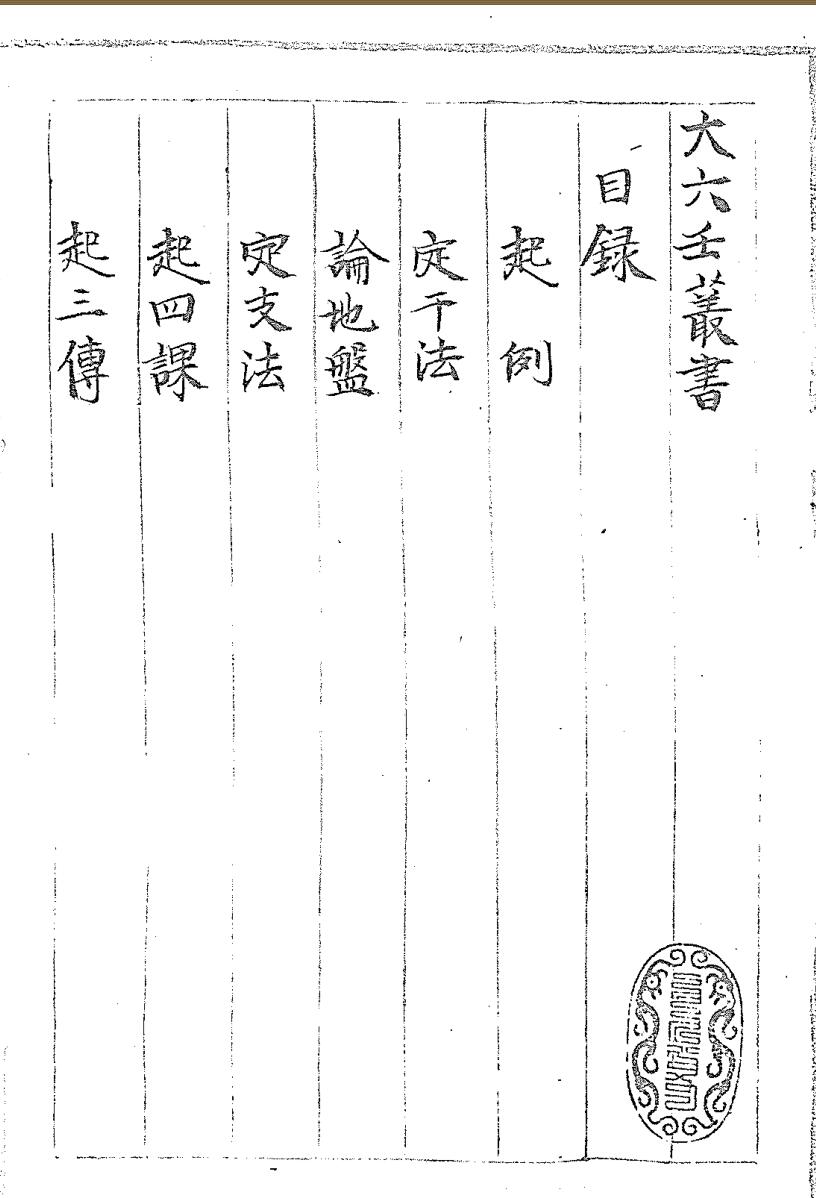 大六壬叢書
目録
起例
定干法
論地盤
定支法
起四課
起三傳